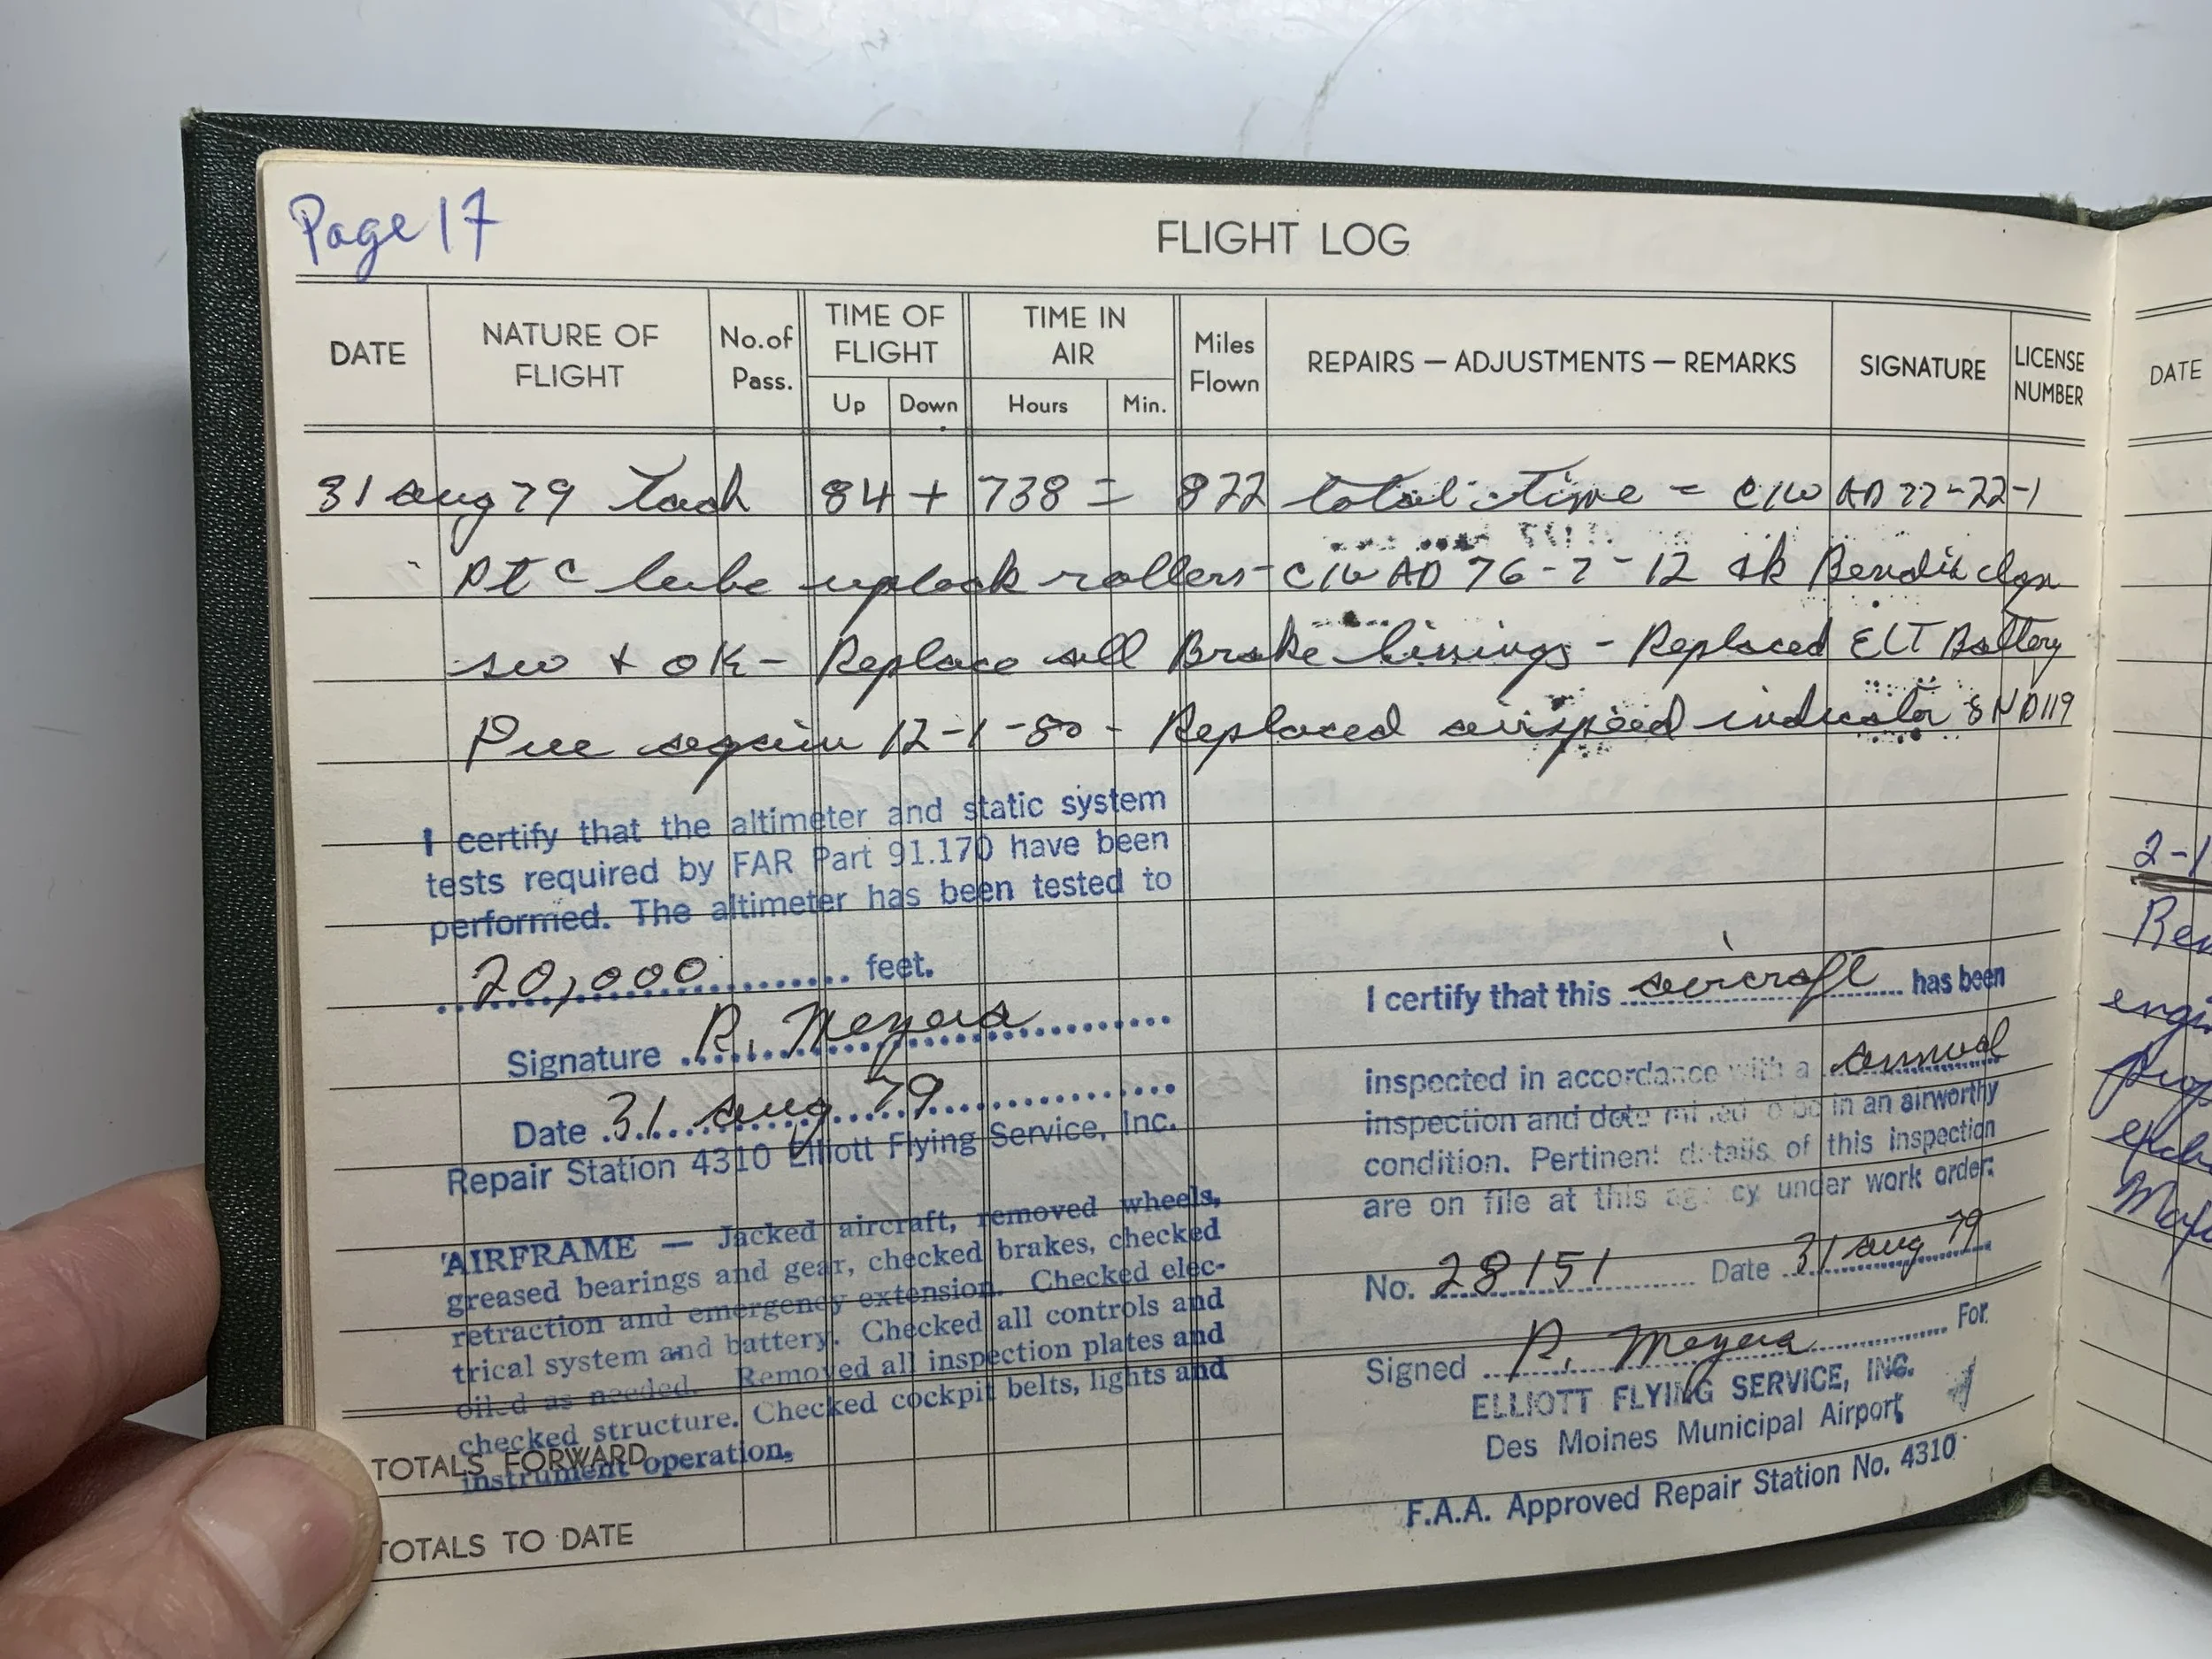 Page 17
FLIGHT LOG
DATE
NATURE OF
FLIGHT
No. of
Pass.
TIME OF
FLIGHT
Up Down
TIME IN
AIR
Hours Min.
Miles
Flown
REPAIRS — ADJUSTMENTS — REMARKS
SIGNATURE
LICENSE
NUMBER
DATE
31 Aug 79 Tach 84 + 738 = 822 total time - C/W AD 77-22-1
Pt C lube uplock rollers - C/W AD 76-7-12 Bendix
sw + OK - Replace all Brake linings - Replaced ELT Battery
Due again 12-1-80 - Replaced airspeed indicator SN D119
I certify that the altimeter and static system
tests required by FAR Part 91.170 have been
performed. The altimeter has been tested to
20,000 feet.
Signature R. Meyers
Date 31 Aug 79
Repair Station 4310 Elliott Flying Service, Inc.
AIRFRAME — Jacked aircraft, removed wheels,
greased bearings and gear, checked brakes, checked
retraction and emergency extension. Checked elec-
trical system and battery. Checked all controls and
oiled as needed. Removed all inspection plates and
checked structure. Checked cockpit belts, lights and
instrument operation.
I certify that this aircraft has been
inspected in accordance with a annual
inspection and determined to be in an airworthy
condition. Pertinent details of this inspection
are on file at this agency under work order:
No. 28151 Date 31 Aug 79
Signed R. Meyers For
ELLIOTT FLYING SERVICE, INC.
Des Moines Municipal Airport
F.A.A. Approved Repair Station No. 4310
TOTALS FORWARD
TOTALS TO DATE
2-1